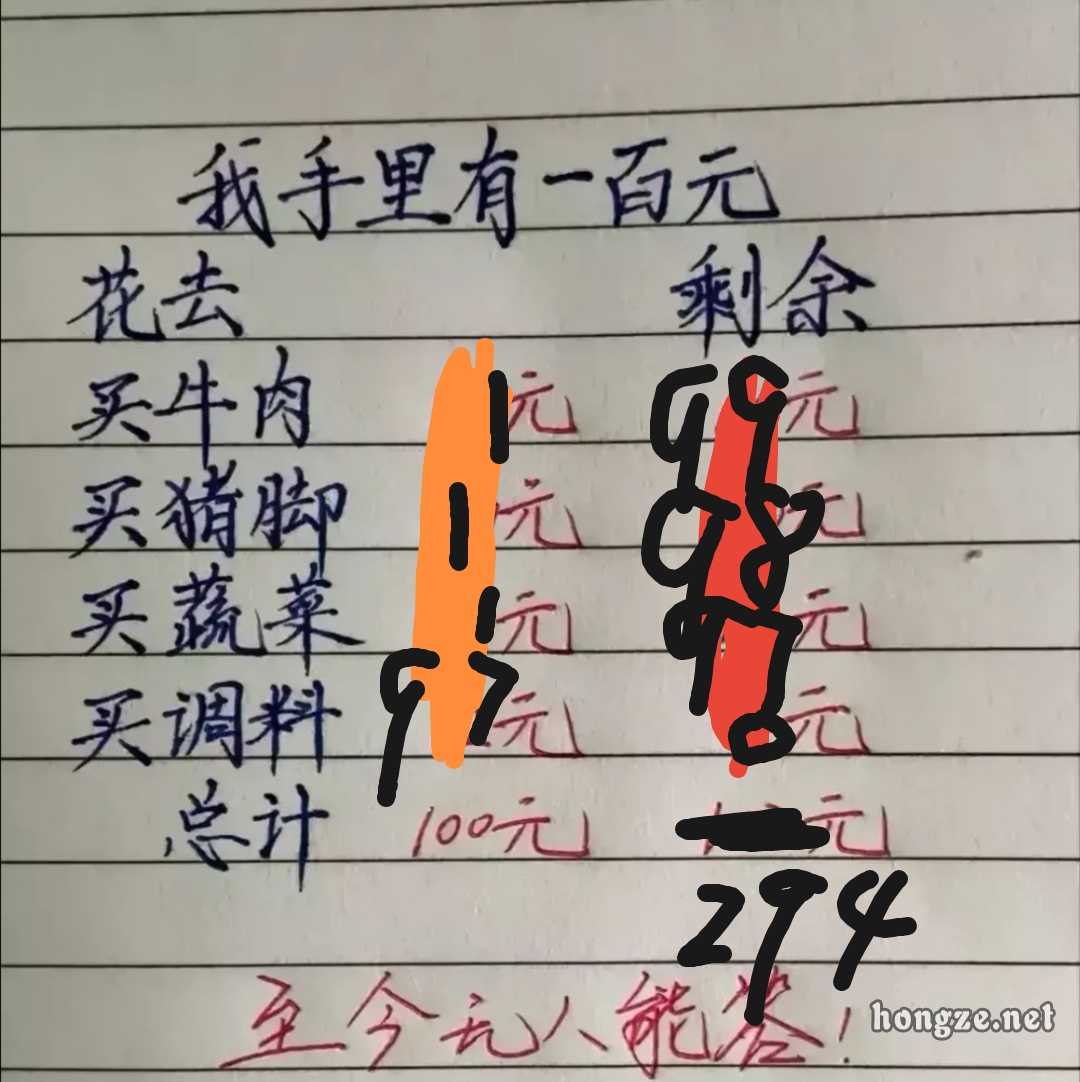 我手里有一百元
花去 剩余
买牛肉 1元 99元
买猪脚 1元 98元
买蔬菜 1元 97元
买调料 97元 0元
总计 100元 元
294
至今无人能答!
hongze.net